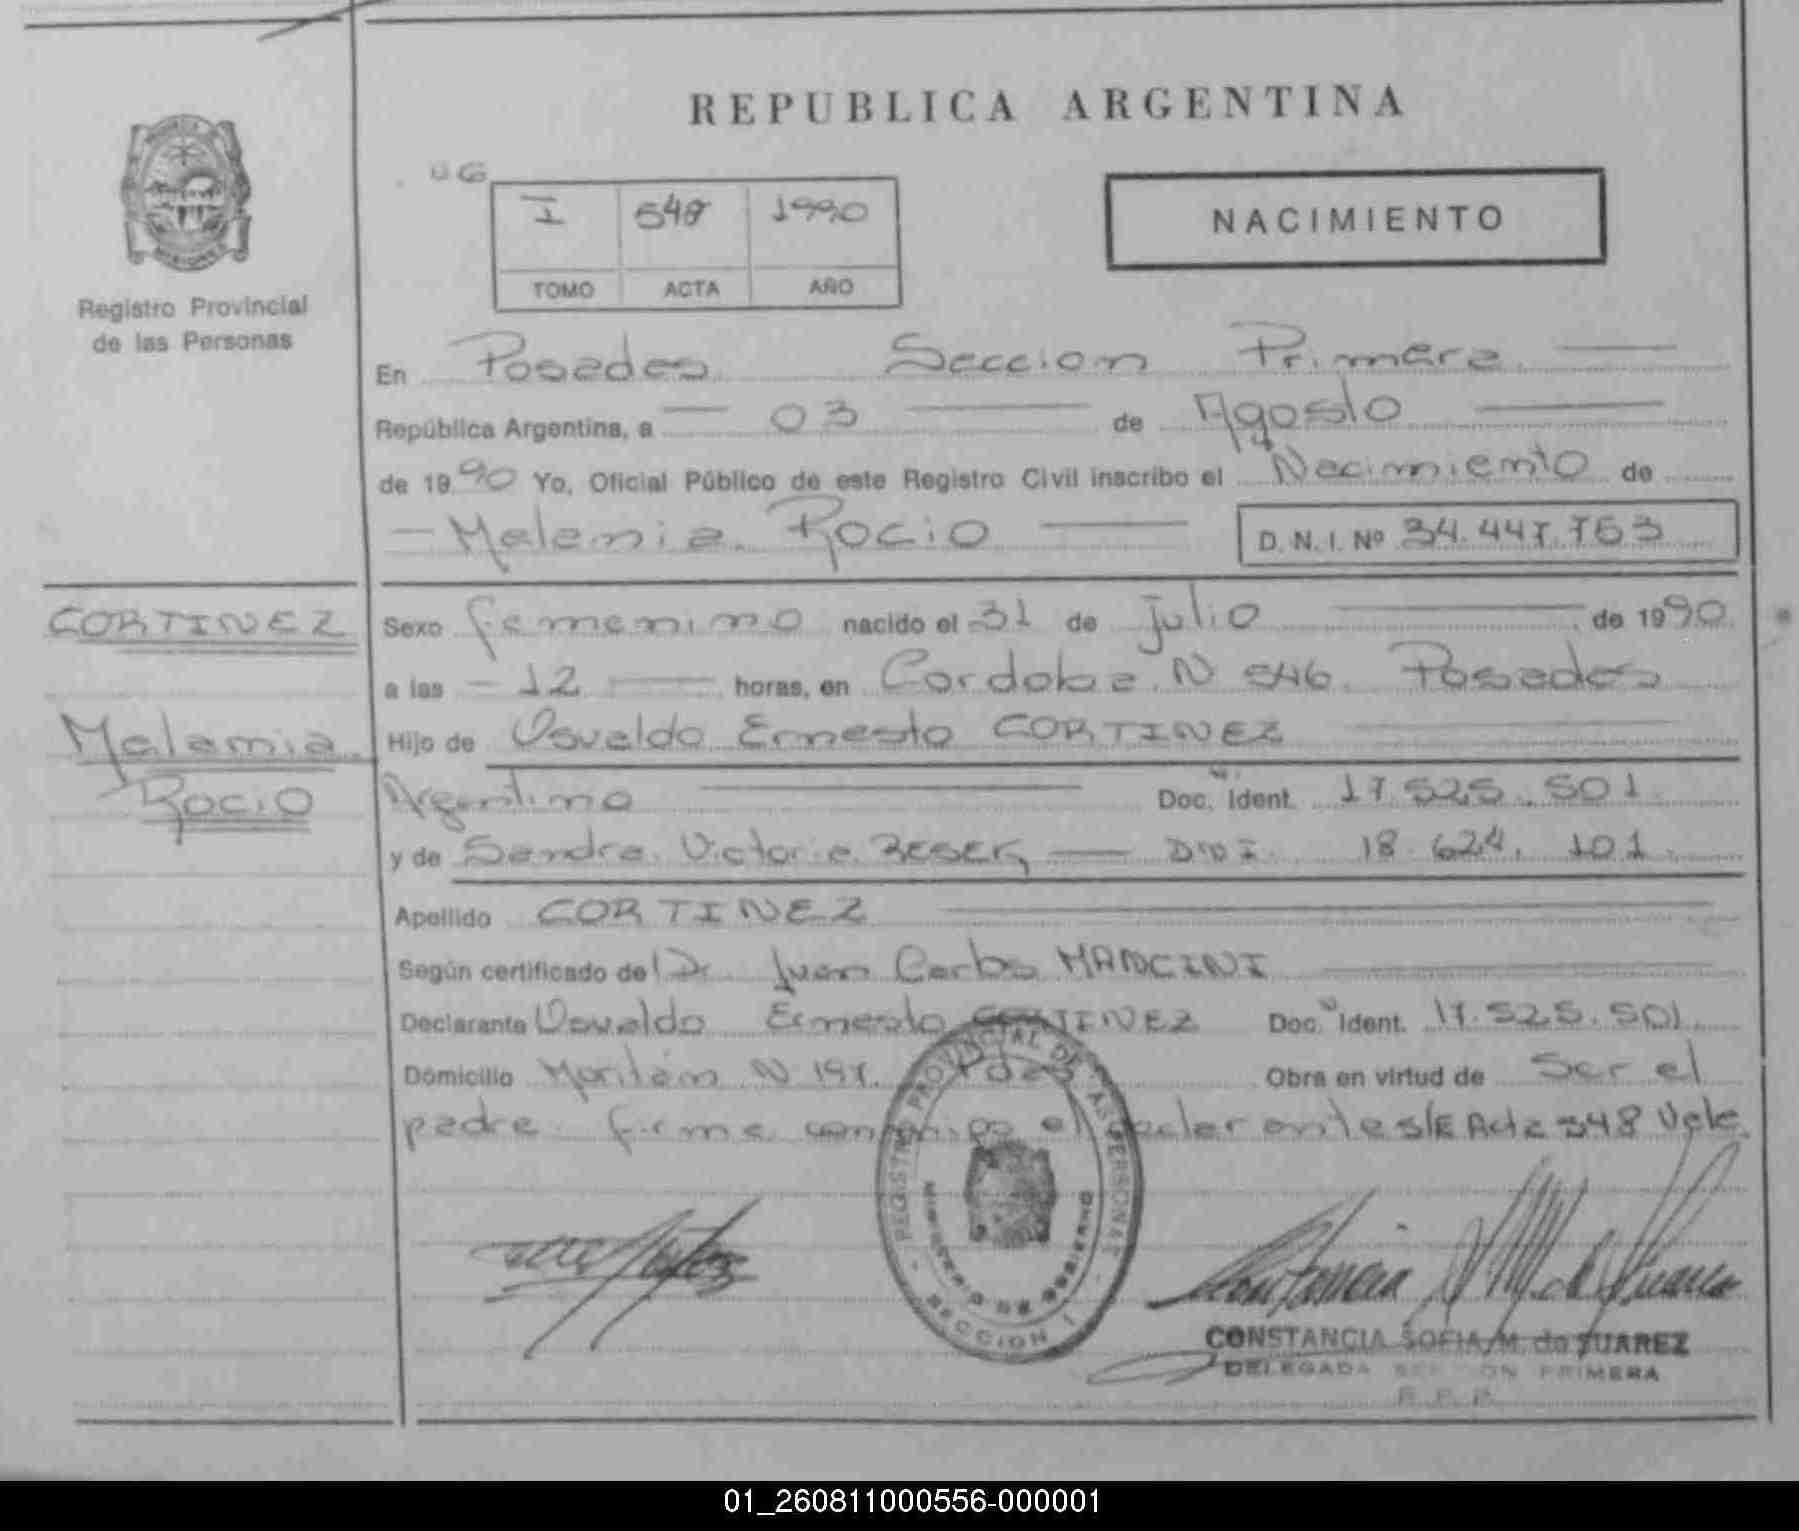 REPUBLICA ARGENTINA
Registro Provincial
de las Personas
I 548 1990
TOMO ACTA AÑO
NACIMIENTO
En Posadas Seccion Primera
República Argentina, a 03 de Agosto
de 1990 Yo, Oficial Público de este Registro Civil inscribo el Nacimiento de
Melania Rocio D. N. I. Nº 34.447.763
CORTINEZ
Melania
Rocio
Sexo femenino nacido el 31 de Julio de 1990
a las 12 horas, en Cordoba N 546 Posadas
Hijo de Osvaldo Ernesto CORTINEZ
Argentino Doc. Ident. 17.525.501
y de Sandra Victoria DNI 18.624.101
Apellido CORTINEZ
Según certificado del Dr. Juan Carlos MANCINI
Declarante Osvaldo Ernesto CORTINEZ Doc. Ident. 17.525.501
Domicilio N Pdas Obra en virtud de Ser el
padre firma conmigo el declarante s/E Acta 548 Vale.
REGISTRO PROVINCIAL DE LAS PERSONAS
MINISTERIO DE GOBIERNO
SECCION I
CONSTANCIA SOFIA M. de SUAREZ
DELEGADA SECCION PRIMERA
R. P. P.
01_260811000556-000001